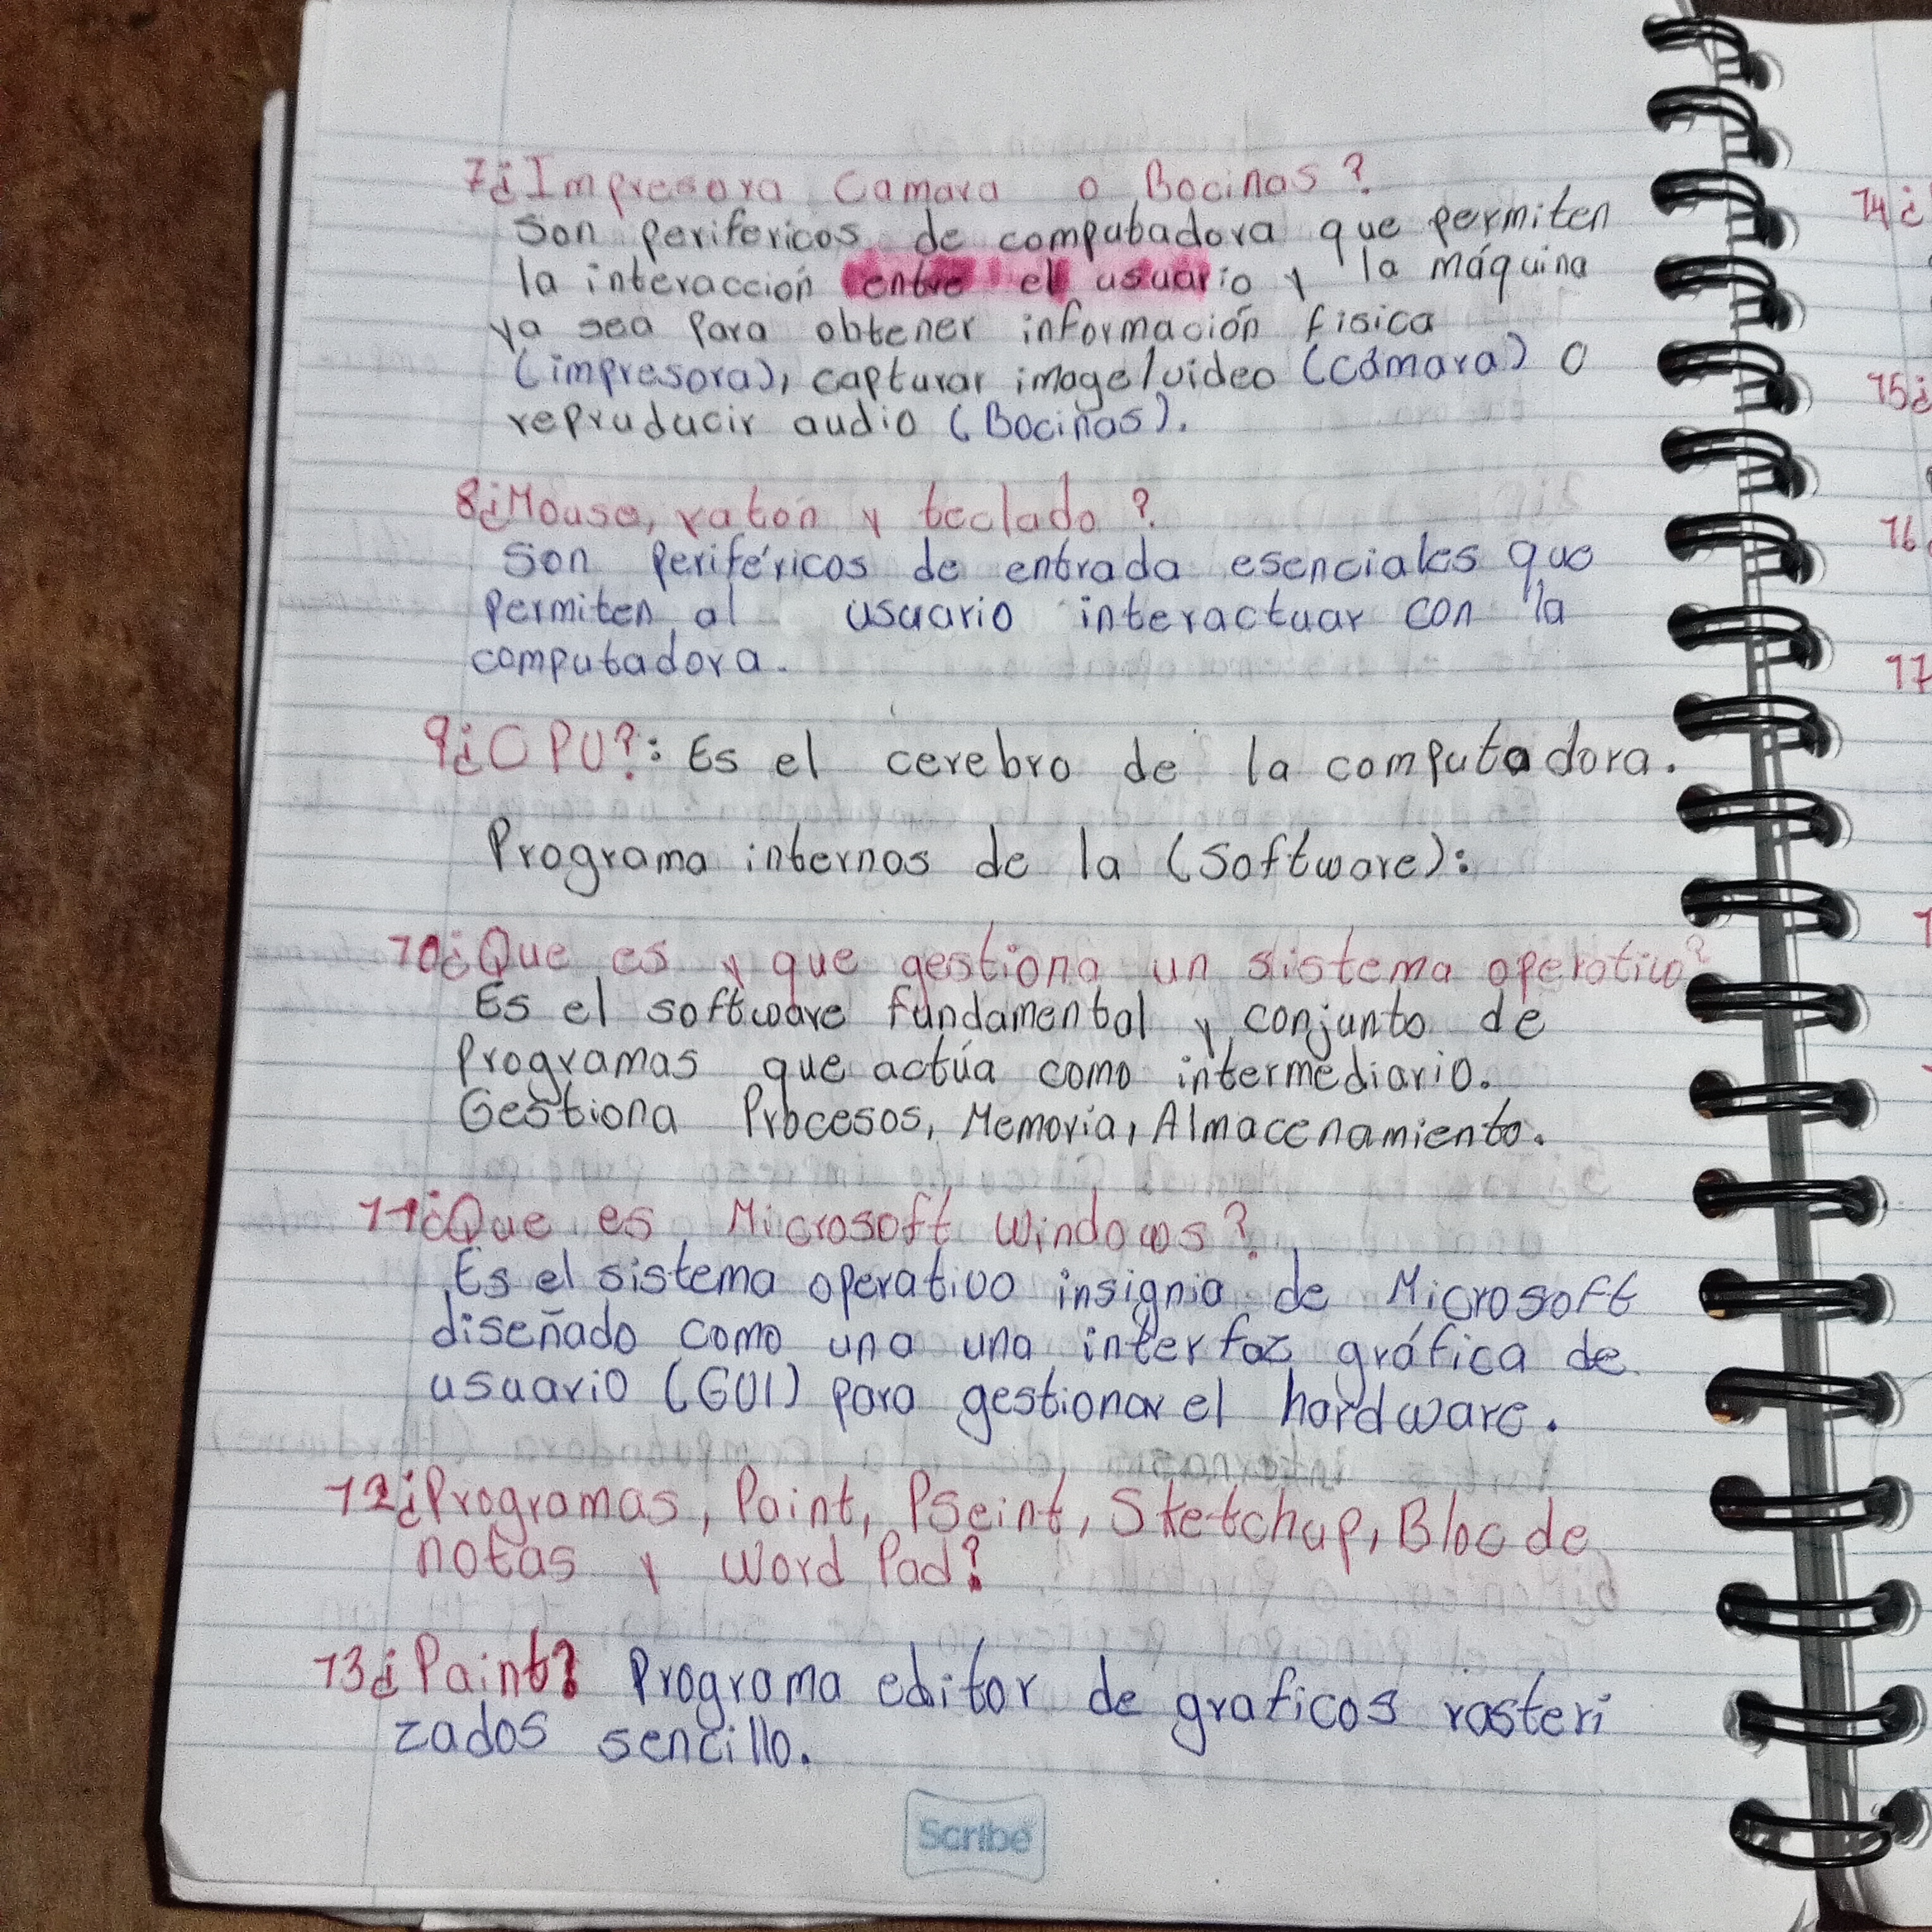 7¿Impresora Camara o Bocinas?
Son perifericos de computadora que permiten
la interacción entre el usuario y la máquina
ya sea Para obtener información fisica
(impresora), capturar image/video (cámara) o
repruducir audio (Bocinas).
8¿Mouse, ratón y teclado?
Son periféricos de entrada esenciales que
permiten al usuario interactuar con la
computadora.
9¿CPU?: Es el cerebro de la computadora.
Programa internos de la (Software):
10¿Que es y que gestiona un sistema operativo?
Es el software fundamental y conjunto de
Programas que actúa como intermediario.
Gestiona Procesos, Memoria, Almacenamiento.
11¿Que es Microsoft Windows?
Es el sistema operativo insignia de Microsoft
diseñado como una una interfaz gráfica de
usuario (GUI) para gestionar el hardware.
12¿Programas, Paint, PSeint, Sketchup, Bloc de
notas y Word Pad?
13¿Paint? Programa editor de graficos rasteri
zados sencillo.
Scribe
14¿
15¿
16
17